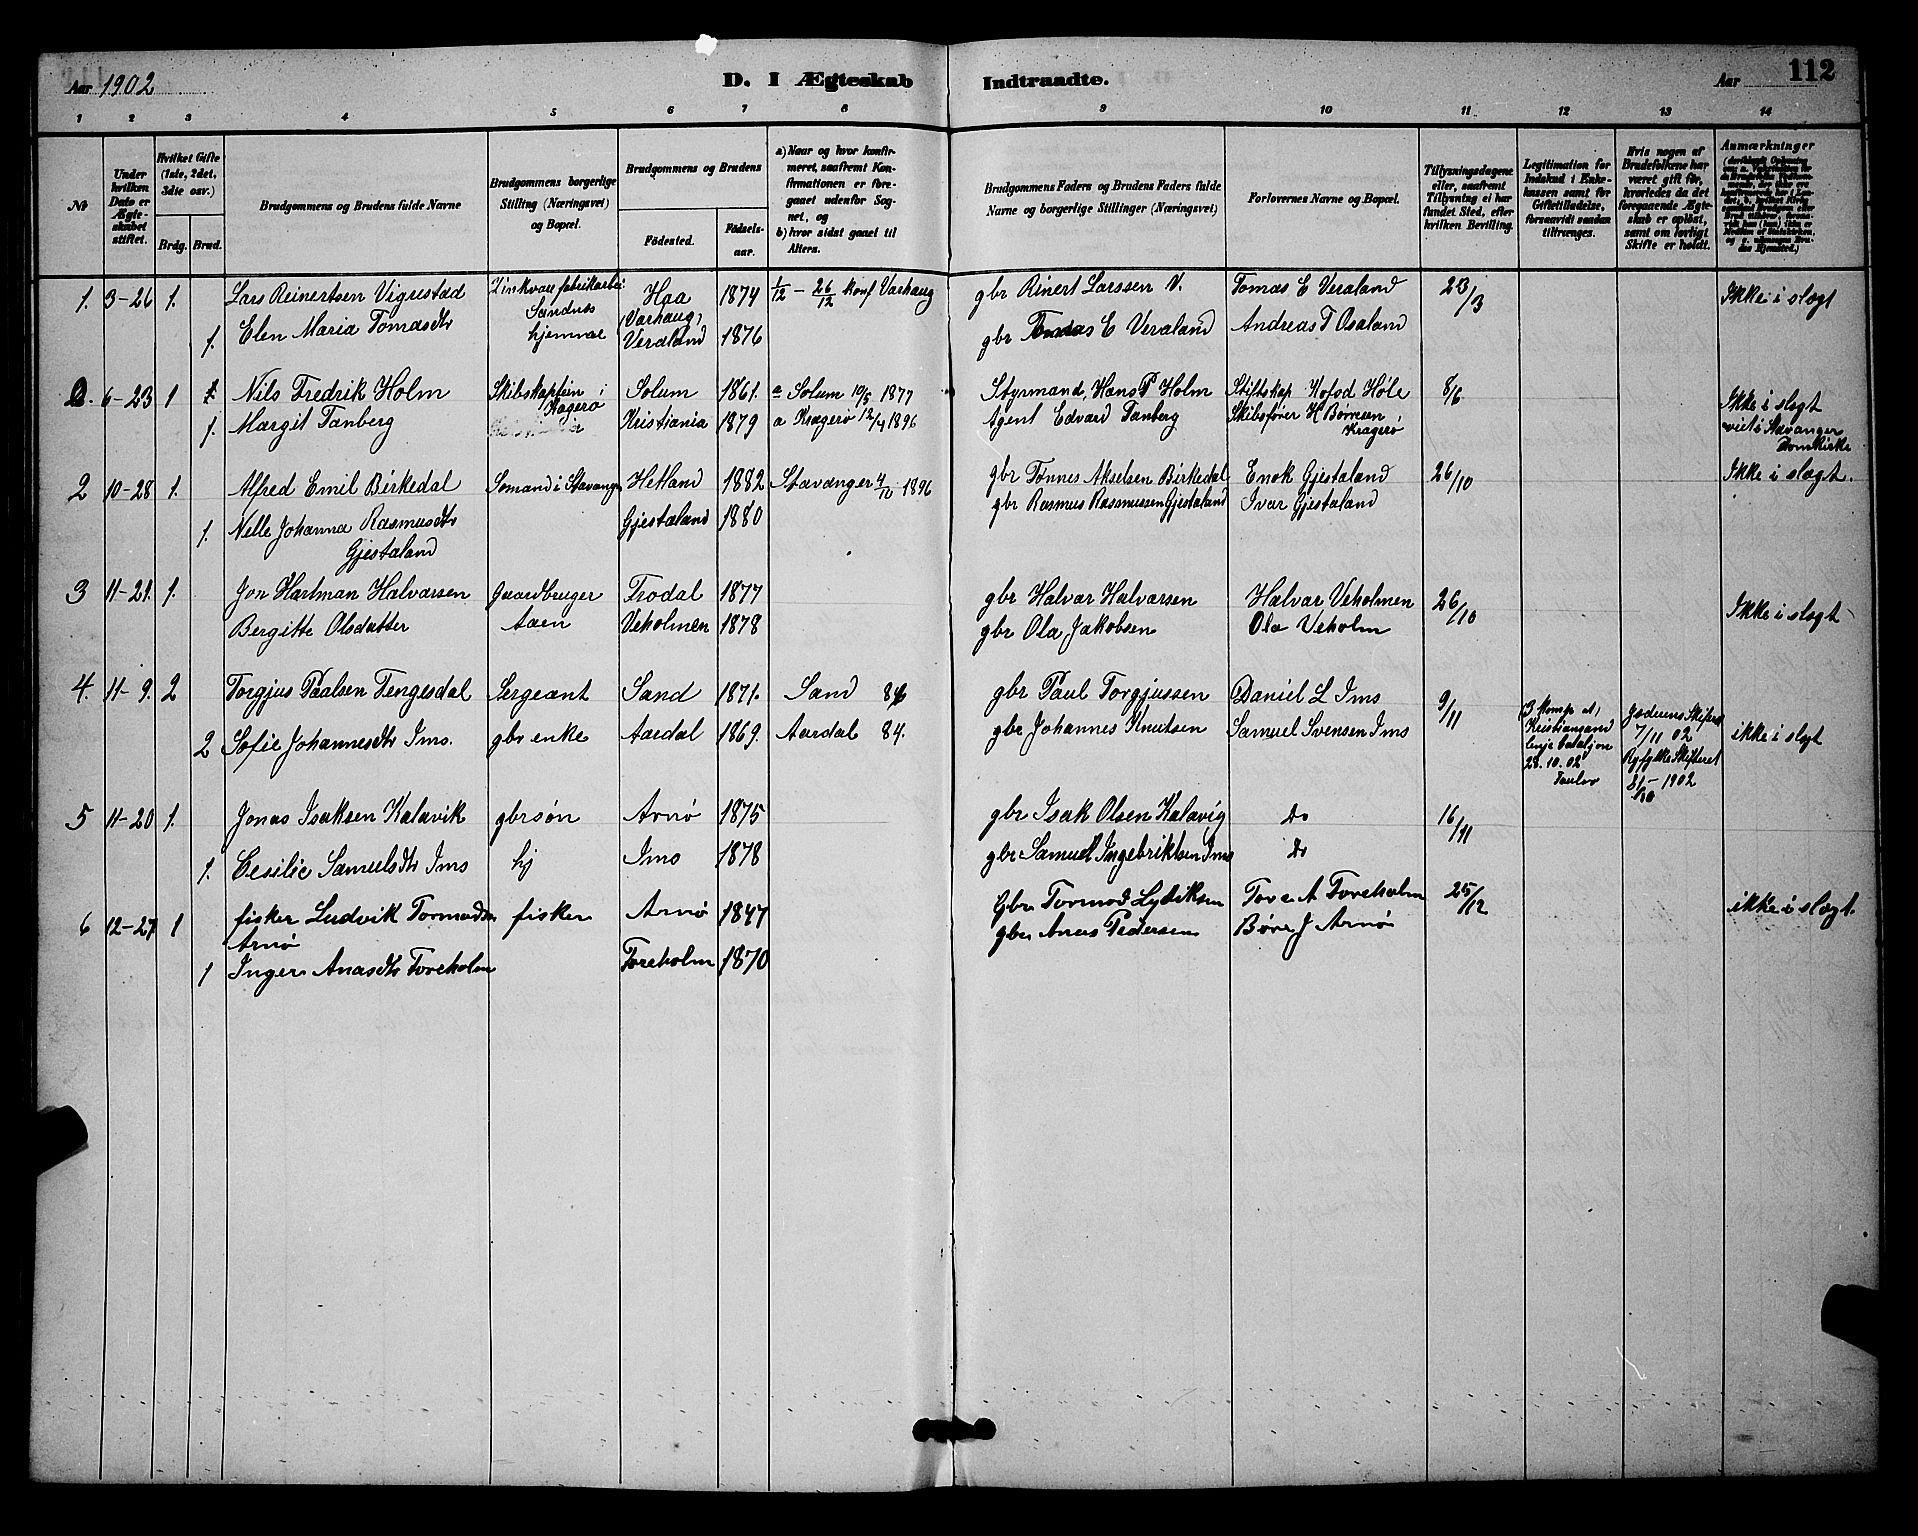 Aar 1902
D. I Ægteskab Indtraadte.
Aar
112
1 2 3 4 5 6 7 8 9 10 11 12 13 14
No
Under hvilken Dato er Ægteskabet stiftet.
Hvilket Gifte (1ste, 2det, 3die osv.)
Brdg. Brud.
Brudgommens og Brudens fulde Navne
Brudgommens borgerlige Stilling (Næringsvei) og Bopæl.
Brudgommens og Brudens
Födested.
Födselsaar.
a) Naar og hvor konfirmeret, saafremt Konfirmationen er foregaaet udenfor Sognet, og
b) hvor sidst gaaet til Alters.
Brudgommens Faders og Brudens Faders fulde Navne og borgerlige Stillinger (Næringsvei)
Forlovernes Navne og Bopæl.
Tillysningsdagene eller, saafremt Tillysning ei har fundet Sted, efter hvilken Bevilling.
Legitimation for Indskud i Enkekassen samt for Giftetilladelse, forsaavidt saadan tiltrænges.
Hvis nogen af Brudefolkene har været gift för, hvorledes da det foregaaende Ægteskab er oplöst, samt om lovligt Skifte er holdt.
Anmærkninger
1. 3-26 1. Lars Reinertsen Vigrestad Zinkvarefabrikarbei Haa 1874 1/12 - 26/12 konf Varhaug gbr Rinert Larssen V. Tomas E Veraland 23/3 Ikke i slægt
Sandnes (Varhaug)
1. Elen Maria Tomasdtr hjemvæ Veraland 1876 gbr Tomas E Veraland Andreas T Osaland
2. 6-23 1 Nils Fredrik Holm Skibskaptein i Solum 1861. a Solum 10/5 1877 Styrmand, Hans P Holm Stiftskap Kofod Høle 8/6 Ikke i slægt
Kragerø
1. Margit Tanberg Kristiania 1879 a Kragerø 12/4 1896 Agent Edvard Tanberg Skibsfører H Borresen, viet i Stavanger
Kragerø Domkirke
2 10-28 1. Alfred Emil Birkedal Sømand i Stavanger Hetland 1882 Stavanger 4/10 1896 gbr Tønnes Akselsen Birkedal Enok Gjestaland 26/10 Ikke i slægt.
1. Nelle Johanna Rasmusdtr Gjestaland 1880 gbr Rasmus Rasmussen Gjestaland Ivar Gjestaland
Gjestaland
3 11-21. 1. Jon Hartman Halvarsen Gaardbruger Frodal 1877 gbr Halvar Halvarsen Halvar Veholmen 26/10 Ikke i slægt
Bergitte Olsdatter Aaen Veholmen 1878 gbr Ola Jakobsen Ola Veholm
4. 11-9. 2 Torgjus Paalsen Tengesdal Sergeant Sand 1871. Sand 86 gbr Paul Torgjussen Daniel L Ims 9/11 3 komp af Jæderens Skifter
Kristiansand 7/11 02
2 Sofie Johannesdtr Ims. gbr enke Aardal 1869. Aardal 84. gbr Johannes Knutsen Samuel Svensen Ims linje bataljon Ryfylke Skifteret ikke i slægt
28.10.02 8/10 - 1902
5 11-20 1. Jonas Isaksen Kalavik gbrsøn Arnø 1875 gbr Isak Olsen Kalavig Do 16/11
1. Cesilie Samuelsdtr Ims hj Ims 1878 gbr Samuel Ingebriktsen Ims Do
6 12-27 1 fisker Ludvik Tormodsn fisker Arnø 1847 Gbr Tormod Lydiksen Tore A Foreholm 25/12 ikke i slægt.
Arnø
1 Inger Anasdtr Foreholm Foreholm 1870 gbr Anas Pedersen Børe J Arnø